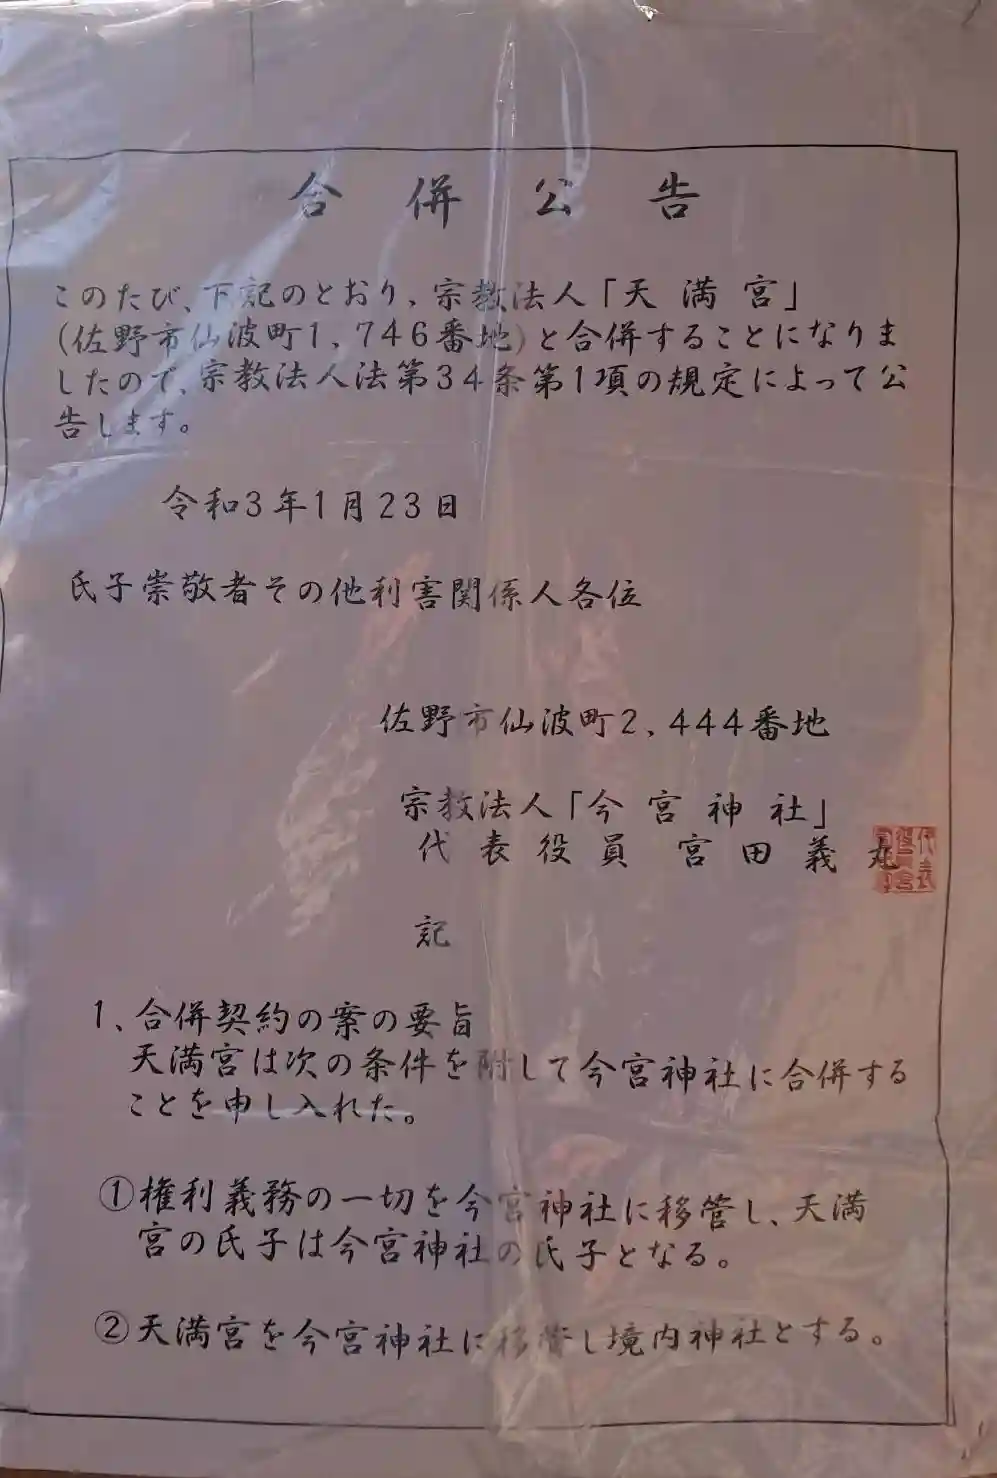 合併公告
このたび、下記のとおり、宗教法人「天満宮」
(佐野市仙波町1,746番地)と合併することになりま
したので、宗教法人法第34条第1項の規定によって公
告します。
令和3年1月23日
氏子崇敬者その他利害関係人各位
佐野市仙波町2,444番地
宗教法人「今宮神社」
代表役員 宮田義丸
記
1、合併契約の案の要旨
天満宮は次の条件を附して今宮神社に合併する
ことを申し入れた。
①権利義務の一切を今宮神社に移管し、天満
宮の氏子は今宮神社の氏子となる。
②天満宮を今宮神社に移管し境内神社とする。